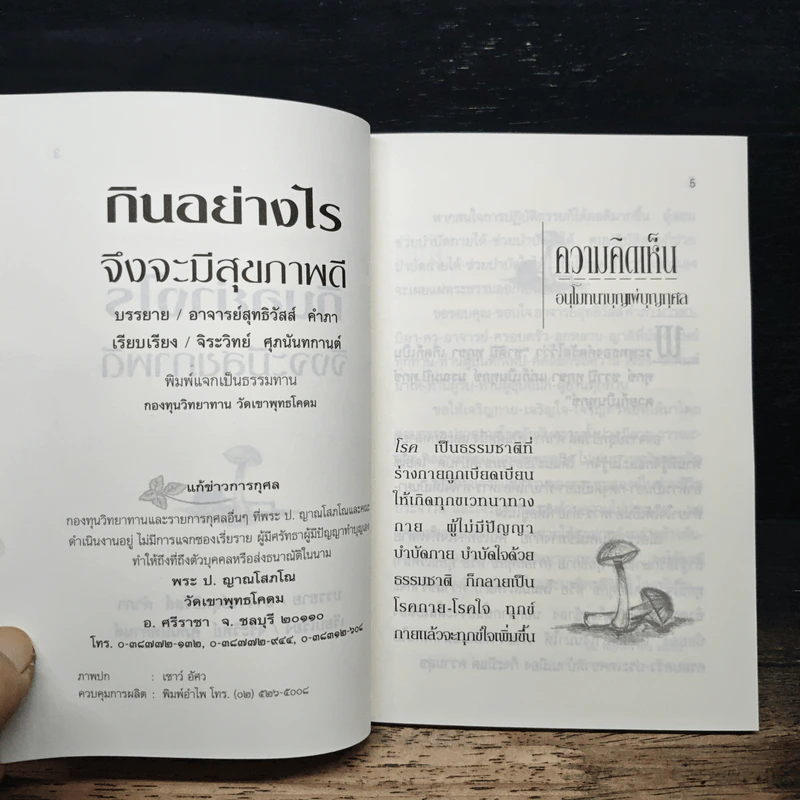 กินอย่างไร
จึงจะมีสุขภาพดี
บรรยาย / อาจารย์สุทธิวัสส์ คำภา
เรียบเรียง / จิระวิทย์ ศุภนันทกานต์
พิมพ์แจกเป็นธรรมทาน
กองทุนวิทยาทาน วัดเขาพุทธโคดม
แก้ข่าวการกุศล
กองทุนวิทยาทานและรายการกุศลอื่นๆ ที่พระ ป. ญาณโสภโณและคณะ
ดำเนินงานอยู่ ไม่มีการแจกซองเรี่ยราย ผู้มีศรัทธาผู้มีปัญญาทำบุญเอง
ทำให้ถึงที่ถึงตัวบุคคลหรือส่งธนาณัติในนาม
พระ ป. ญาณโสภโณ
วัดเขาพุทธโคดม
อ. ศรีราชา จ. ชลบุรี ๒๐๑๑๐
โทร. ๐-๓๘๗๗๒-๑๓๒, ๐-๓๘๗๗๒-๙๔๔, ๐-๓๘๓๑๒-๖๐๘
ภาพปก : เชาว์ อัศว
ควบคุมการผลิต : พิมพ์อำไพ โทร. (๐๒) ๕๒๖-๕๐๐๘
5
ความคิดเห็น
อนุโมทนาบุญเพ่บุญกุศล
โรค เป็นธรรมชาติที่
ร่างกายถูกเบียดเบียน
ให้เกิดทุกขเวทนาทาง
กาย ผู้ไม่มีปัญญา
บำบัดกาย บำบัดใจด้วย
ธรรมชาติ ก็กลายเป็น
โรคกาย-โรคใจ ทุกข์
กายแล้วจะทุกข์ใจเพิ่มขึ้น